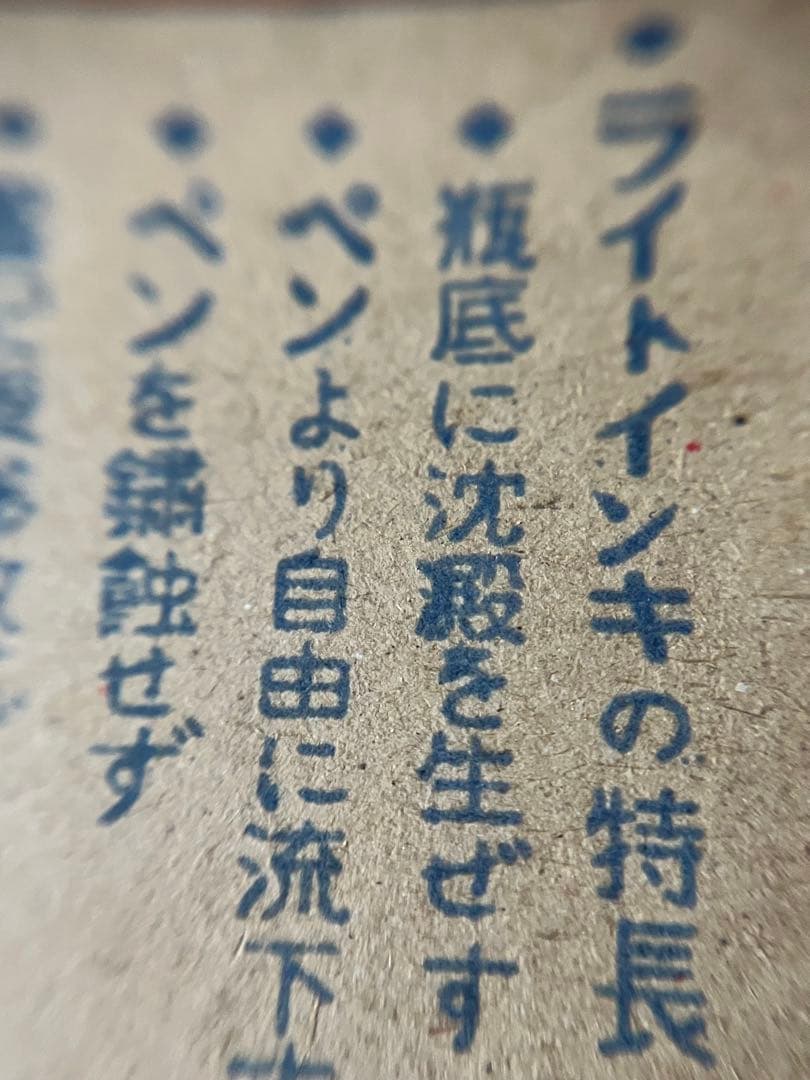 ●ライトインキの特長
●瓶底に沈殿を生ぜす
●ペンより自由に流下
●ペンを鏽蝕せず